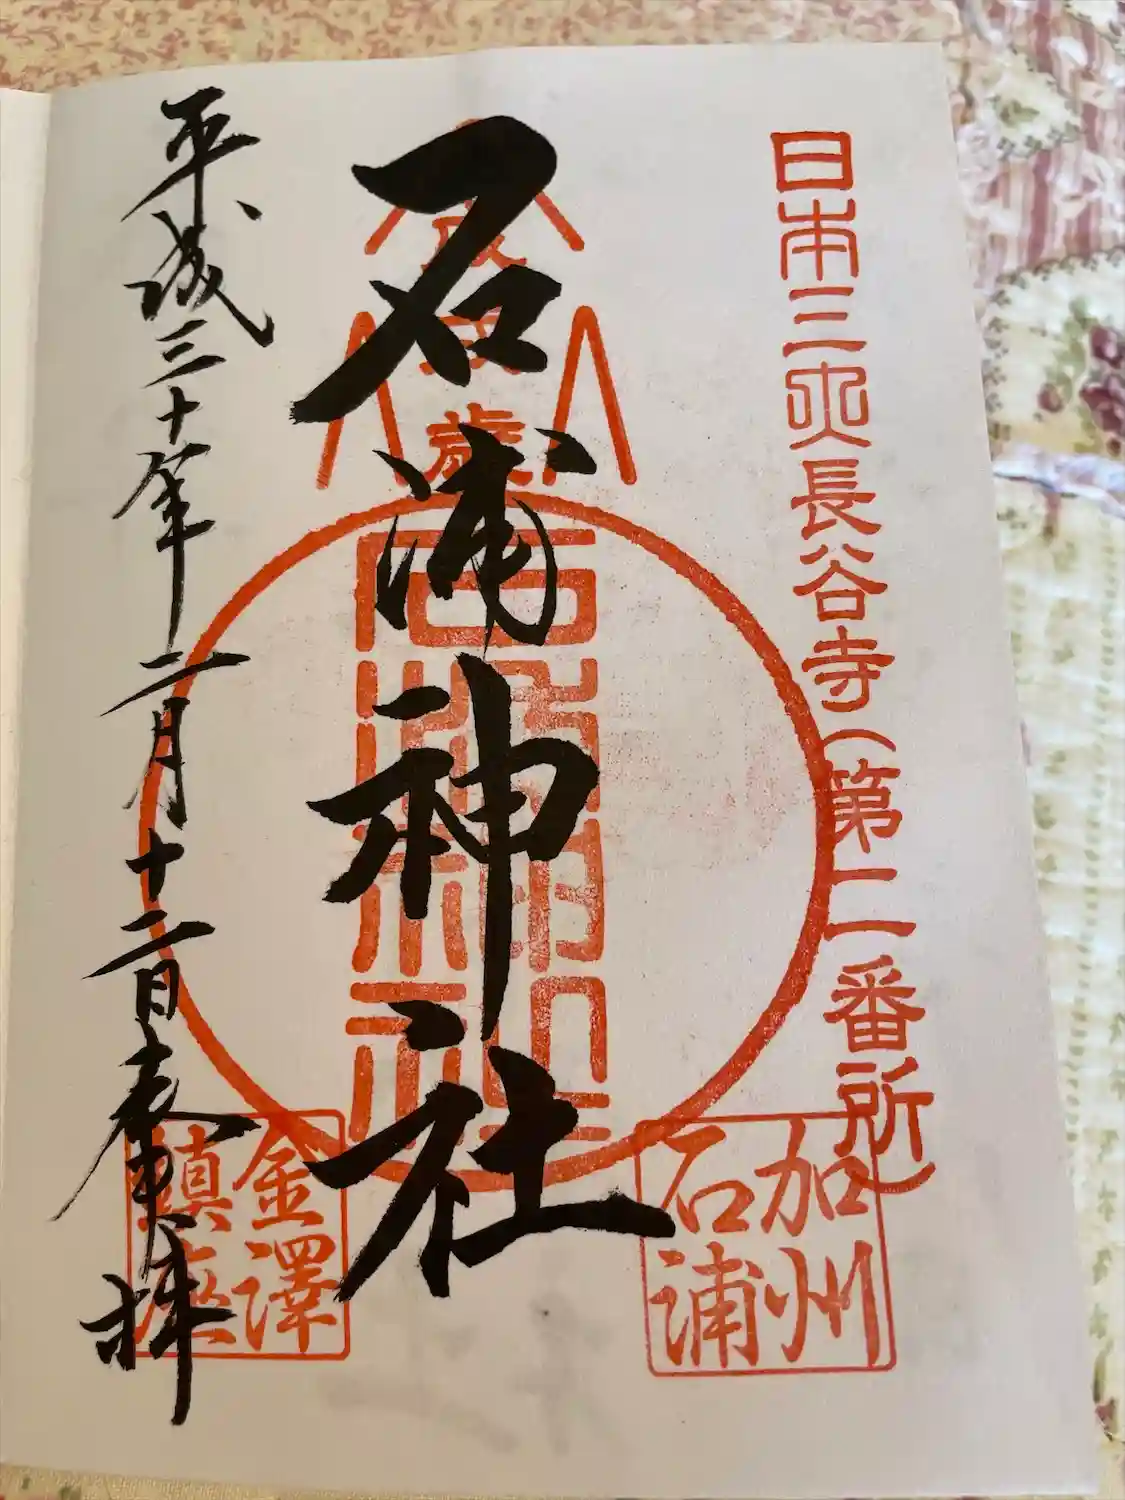 日本三大長谷寺(第二番所)
加州
石浦
石浦神社
歳
石浦神社
平成三十年二月十二日奉拝
金澤
鎮座